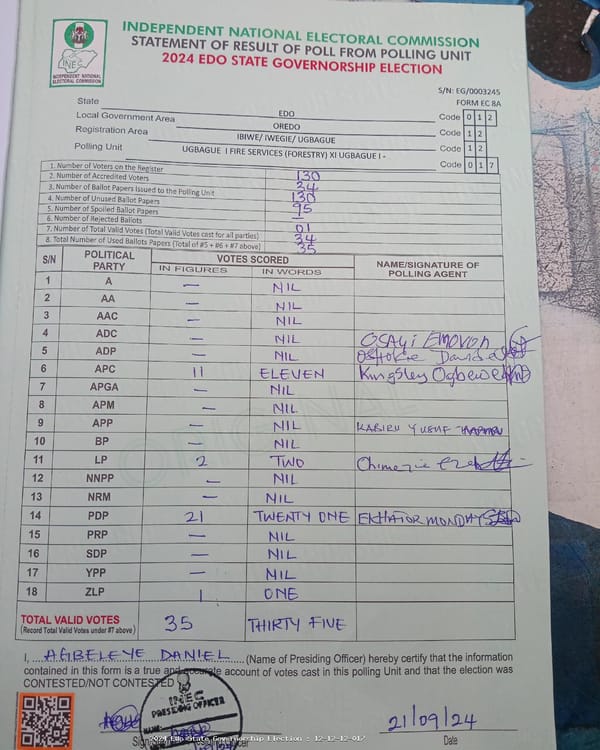 INDEPENDENT NATIONAL ELECTORAL COMMISSION
STATEMENT OF RESULT OF POLL FROM POLLING UNIT
2024 EDO STATE GOVERNORSHIP ELECTION
INEC
INDEPENDENT NATIONAL ELECTORAL COMMISSION
S/N: EG/0003245
FORM EC 8A
State EDO Code 0 1 2
Local Government Area OREDO Code 1 2
Registration Area IBIWE/ IWEGIE/ UGBAGUE Code 1 2
Polling Unit UGBAGUE I FIRE SERVICES (FORESTRY) XI UGBAGUE I - Code 0 1 7
1. Number of Voters on the Register 130
2. Number of Accredited Voters 34
3. Number of Ballot Papers Issued to the Polling Unit 130
4. Number of Unused Ballot Papers 95
5. Number of Spoiled Ballot Papers —
6. Number of Rejected Ballots 01
7. Number of Total Valid Votes (Total Valid Votes cast for all parties) 34
8. Total Number of Used Ballots Papers (Total of #5 + #6 + #7 above) 35
S/N POLITICAL PARTY VOTES SCORED NAME/SIGNATURE OF POLLING AGENT
IN FIGURES IN WORDS
1 A — NIL
2 AA — NIL
3 AAC — NIL
4 ADC — NIL OSAYI
5 ADP — NIL David
6 APC 11 ELEVEN Kingsley
7 APGA — NIL
8 APM — NIL
9 APP — NIL KABIRU YUSUF
10 BP — NIL
11 LP 2 TWO
12 NNPP — NIL
13 NRM — NIL
14 PDP 21 TWENTY ONE EKHATOR MONDAY
15 PRP — NIL
16 SDP — NIL
17 YPP — NIL
18 ZLP 1 ONE
TOTAL VALID VOTES 35 THIRTY FIVE
(Record Total Valid Votes under #7 above)
I, AGBELEYE DANIEL (Name of Presiding Officer) hereby certify that the information
contained in this form is a true and accurate account of votes cast in this polling Unit and that the election was
CONTESTED/NOT CONTESTED
INEC
PRESIDING OFFICER
NAME:
21/09/24
2024 Edo State Governorship Election : 12-12-12-017
Date